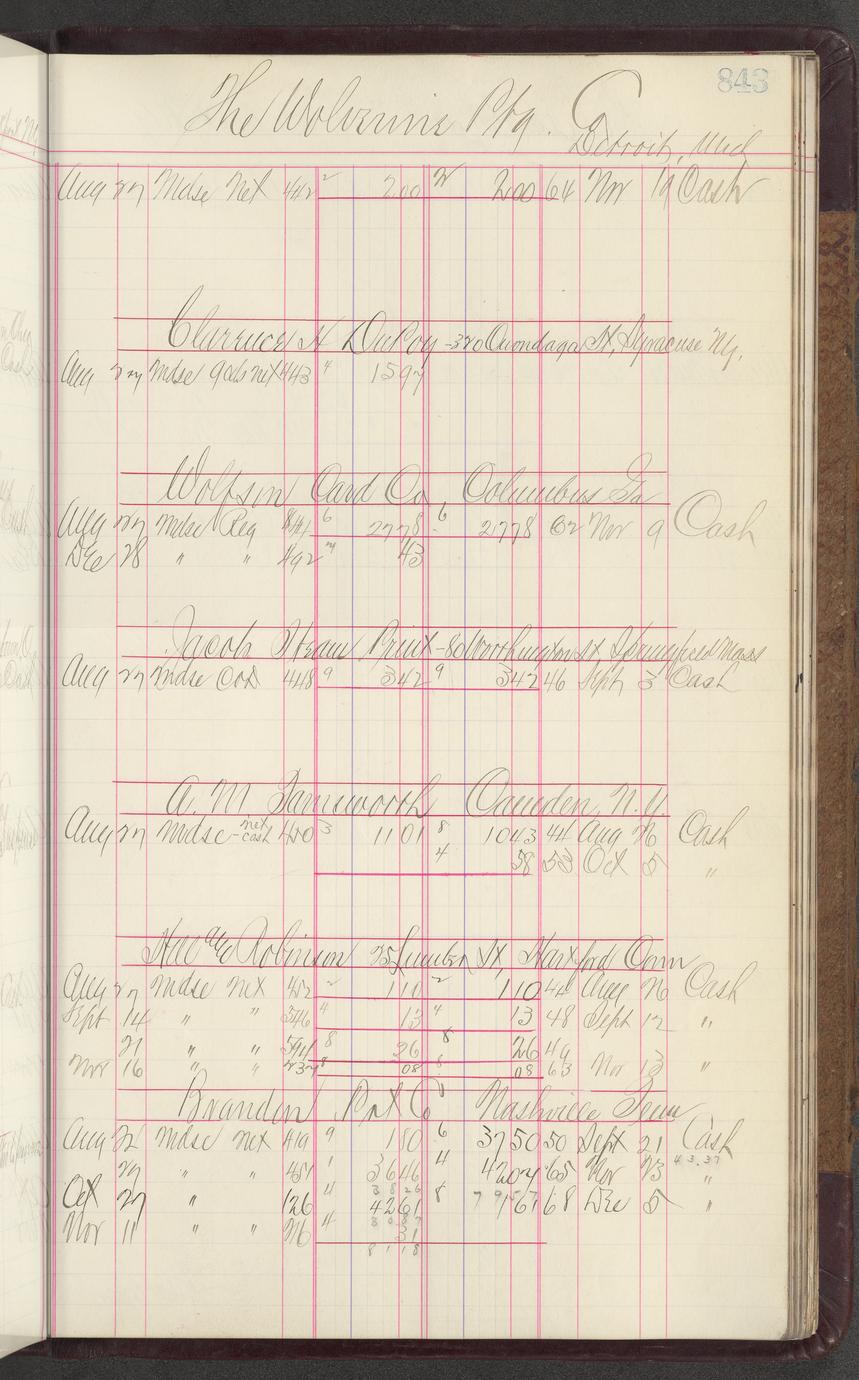 843
The Wolverine Ptg. Co
Detroit, Mich
Aug 27 Mdse Net 442 2 200 2 200 64 Nov 19 Cash
Clarence H DuPoy - 320 Onondaga St, Syracuse Ny.
Aug 27 Mdse net 443 4 1597
Wolfson Card Co, Columbus Ga
Aug 27 Mdse Reg 444 6 2778 6 2778 62 Nov 9 Cash
Dec 28 " " 492 43
Jacob Steam Print - 80 Worthington St Springfield Mass
Aug 27 Mdse Cod 448 9 342 9 342 46 Sept 3 Cash
A. M Farnsworth Camden, N.Y
Aug 27 Mdse - net cash 450 3 1101 8 1043 44 Aug 26 Cash
4 58 53 Oct 5 "
Robinson 25 Lumber St, Hartford Conn
Aug 27 Mdse Net 452 2 110 2 110 44 Aug 26 Cash
Sept 14 " " 346 4 13 4 13 48 Sept 12 "
21 " " 591 8 26 8 26 49
Nov 16 " " 237 8 08 8 08 63 Nov 13 "
Branden Prt Co Nashville Tenn
Aug 22 Mdse Net 419 9 180 6 3750 50 Sept 21 Cash
27 " " 451 1 3646 4 4207 65 Nov 23 43.37 "
3826
Oct 27 " " 126 4 4261 8 161 68 Dec 5 "
8087
Nov 11 " " 26 4 31
8118